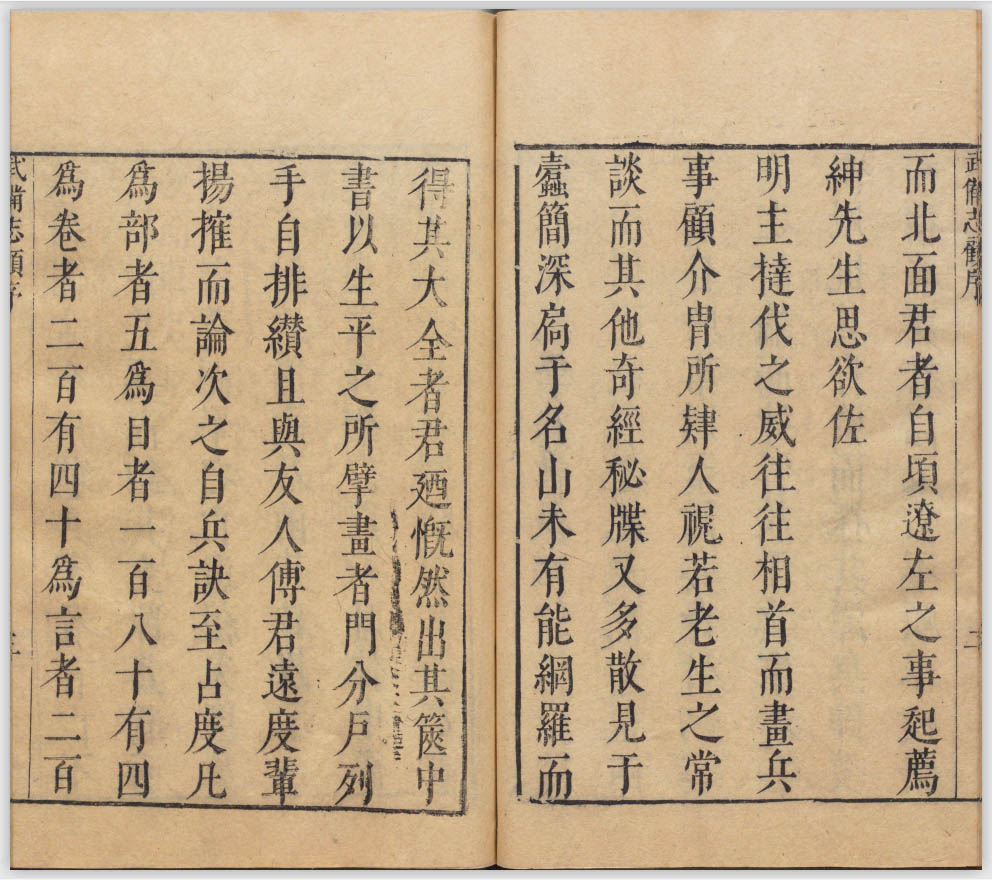 武備志顧序
二
而北面君者自頃遼左之事起薦
紳先生思欲佐
明主撻伐之威往往相首而畫兵
事顧介冑所肄人視若老生之常
談而其他奇經秘牒又多散見于
蠹簡深扃于名山未有能網羅而
得其大全者君廼慨然出其篋中
書以生平之所擘畫者門分戶列
手自排纘且與友人傅君遠度輩
揚搉而論次之自兵訣至占度凡
為部者五為目者一百八十有四
為卷者二百有四十為言者二百
武備志顧序